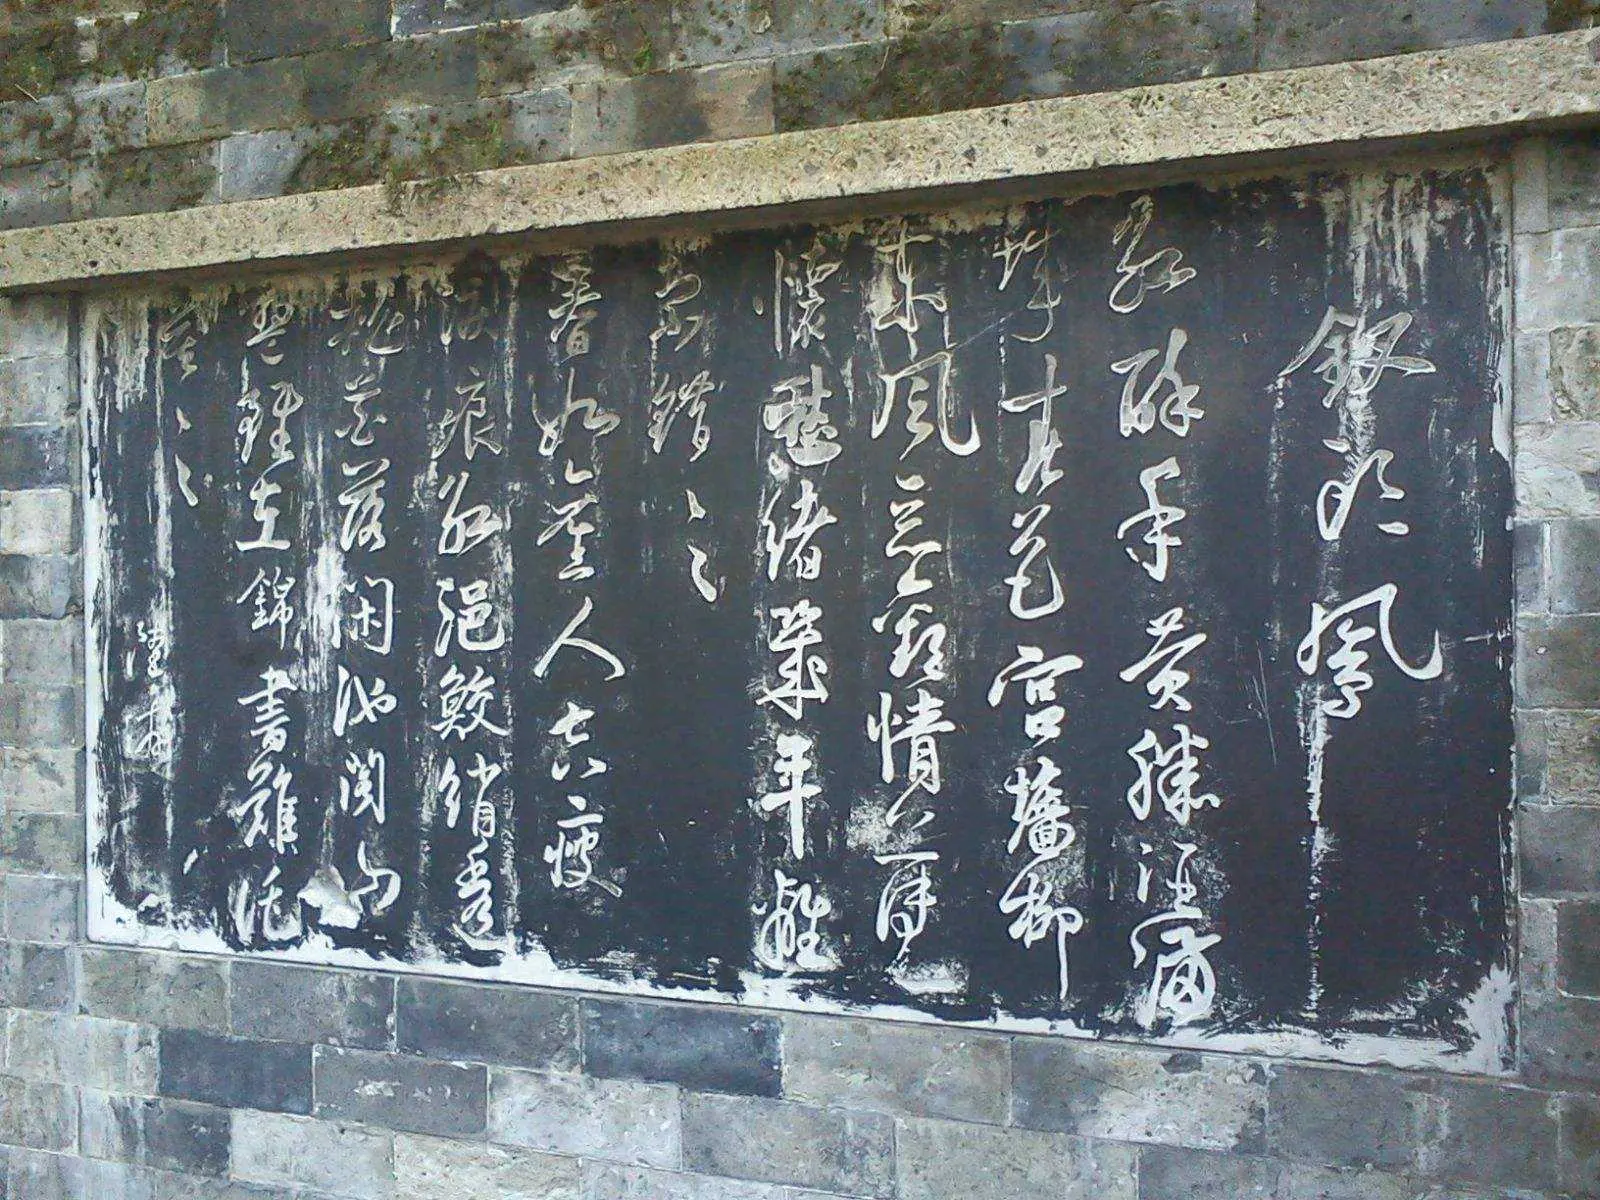 釵頭鳳
紅酥手黄縢酒滿
城春色宮牆柳
東風惡歡情薄一
懷愁緒幾年離
索錯〻〻
春如舊人空瘦
淚痕紅浥鮫綃透
桃花落閑池閣山
盟雖在錦書難託
莫〻〻
陸游